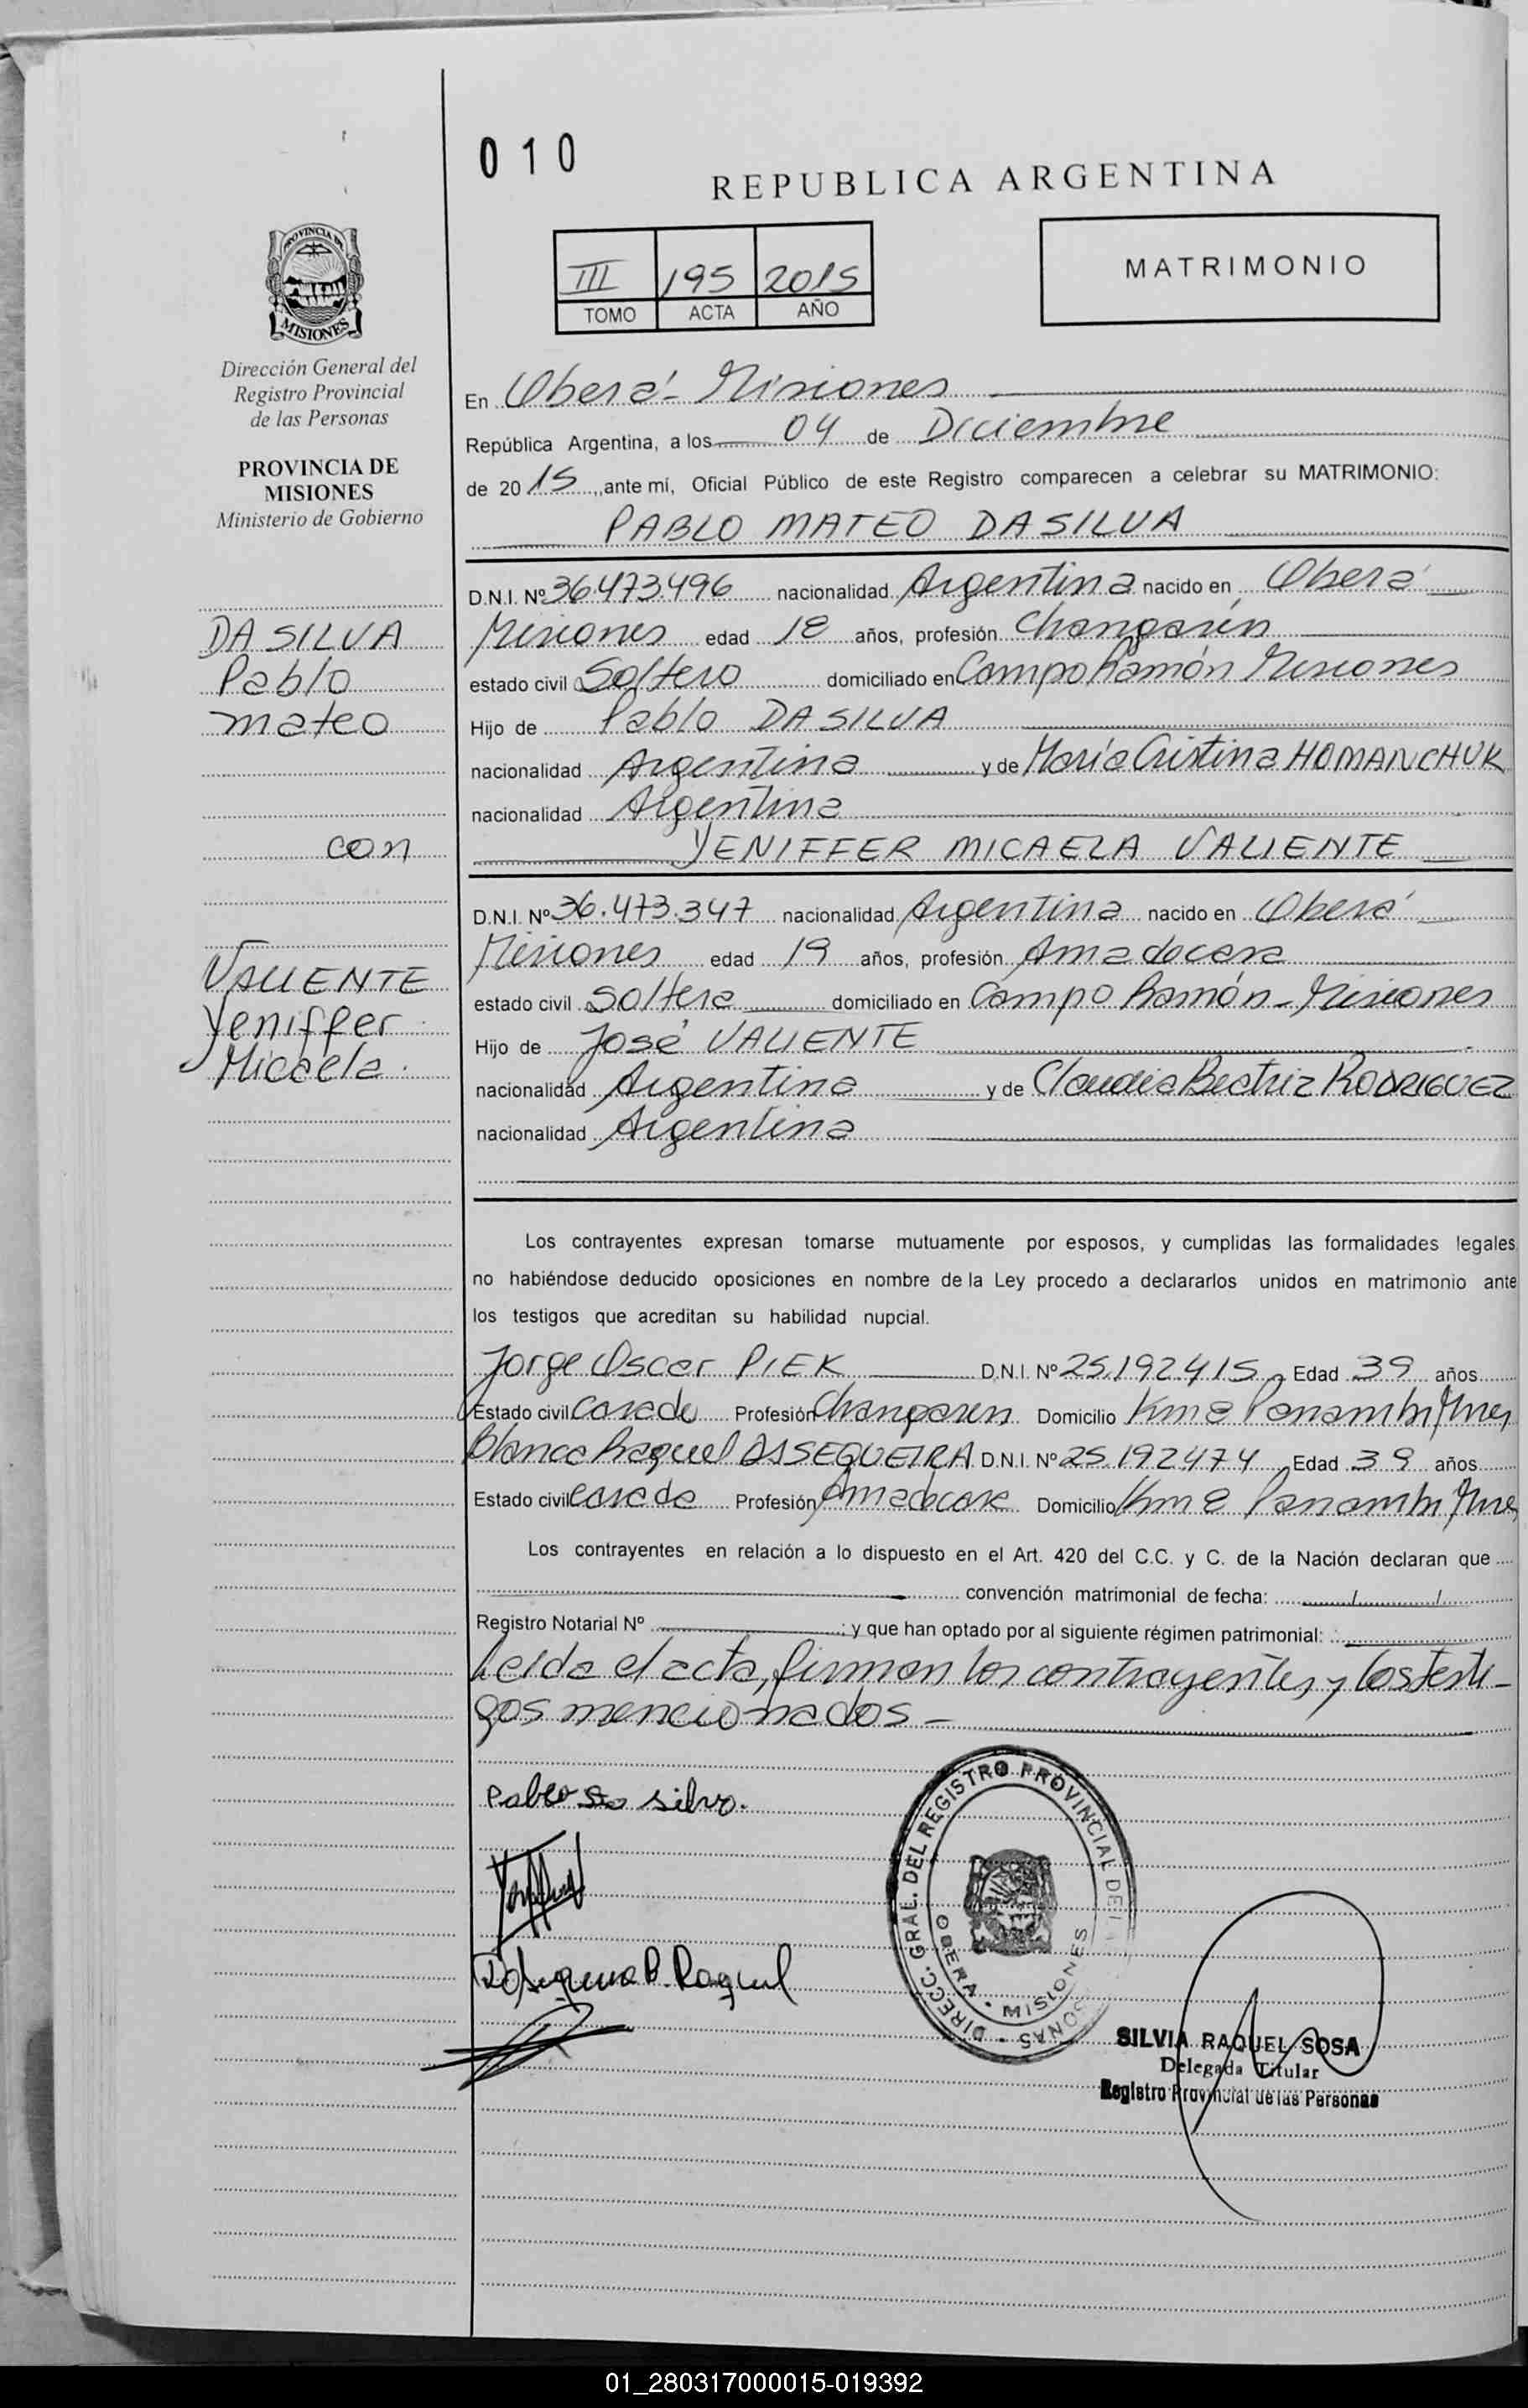 010
REPUBLICA ARGENTINA
III 195 2015
TOMO ACTA AÑO
MATRIMONIO
PROVINCIA DE
MISIONES
Dirección General del
Registro Provincial
de las Personas
PROVINCIA DE
MISIONES
Ministerio de Gobierno
DA SILVA
Pablo
mateo
con
VALIENTE
Yeniffer
Micaela.
En Oberá - Misiones
República Argentina, a los 04 de Diciembre
de 2015, ante mí, Oficial Público de este Registro comparecen a celebrar su MATRIMONIO:
PABLO MATEO DA SILVA
D.N.I. Nº 36.473.496 nacionalidad Argentina nacido en Oberá
Misiones edad 18 años, profesión Changarín
estado civil Soltero domiciliado en Campo Ramón Misiones
Hijo de Pablo DA SILVA
nacionalidad Argentina y de María Cristina HOMANCHUK
nacionalidad Argentina
YENIFFER MICAELA VALIENTE
D.N.I. Nº 36.473.347 nacionalidad Argentina nacido en Oberá
Misiones edad 19 años, profesión Ama de casa
estado civil Soltera domiciliado en Campo Ramón - Misiones
Hijo de José VALIENTE
nacionalidad Argentina y de Claudia Beatriz RODRIGUEZ
nacionalidad Argentina
Los contrayentes expresan tomarse mutuamente por esposos, y cumplidas las formalidades legales
no habiéndose deducido oposiciones en nombre de la Ley procedo a declararlos unidos en matrimonio ante
los testigos que acreditan su habilidad nupcial.
Jorge Oscar PIEK D.N.I. Nº 25.192.415 Edad 39 años
Estado civil Casado Profesión Changarin Domicilio Km 8 Panambi Mnes
Blanca Raquel DASSEQUEIRA D.N.I. Nº 25.192.474 Edad 39 años
Estado civil Casada Profesión Ama de casa Domicilio Km 8 Panambi Mnes
Los contrayentes en relación a lo dispuesto en el Art. 420 del C.C. y C. de la Nación declaran que
convención matrimonial de fecha: / /
Registro Notarial Nº ; y que han optado por al siguiente régimen patrimonial:
Leida el acta, firman los contrayentes y los testi-
gos mencionados -
Pablo Da Silva.
B. Raquel
DIRECC. GRAL. DEL REGISTRO PROVINCIAL DE
OBERA - MISIONES
SILVIA RAQUEL SOSA
Delegada Titular
Registro Provincial de las Personas
01_280317000015-019392